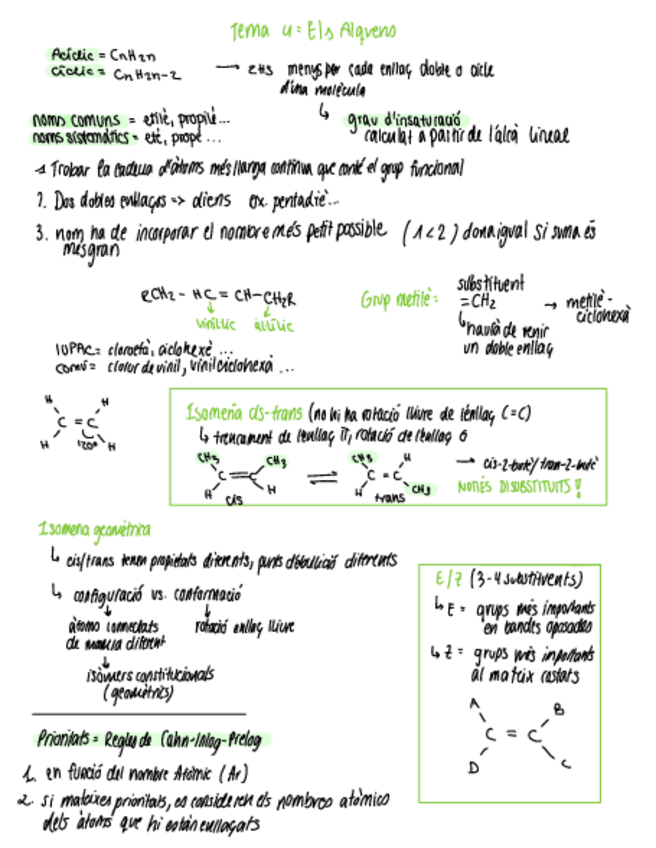 Tema 4 = Els Alquens
Acíclic = CnH2n
Cíclic = CnH2n-2
→ 2H's menys per cada enllaç doble o cicle
d'una molècula
↳ grau d'insaturació
calculat a partir de l'alcà lineal
noms comuns = etilè, propilè...
noms sistemàtics = etè, propè...
1 Trobar la cadena d'àtoms més llarga contínua que conté el grup funcional
2. Dos dobles enllaços => diens ex. pentadiè...
3. nom ha de incorporar el nombre més petit possible (1<2) dona igual si suma és
més gran
RCH2 - HC = CH - CH2R
vinílic al·lílic
Grup metilè =
substituent
=CH2 → metilè-
ciclohexà
↳ haurà de tenir
un doble enllaç
IUPAC = cloroetà, ciclohexè...
comú = clorur de vinil, vinilciclohexà...
H H
C = C
H 120° H
Isomeria cis-trans (no hi ha rotació lliure de l'enllaç C=C)
↳ trencament de l'enllaç π, rotació de l'enllaç σ
CH3 CH3 CH3 H
C C C = C
H H H CH3
cis trans
→ cis-2-butè/tran-2-butè
NOMÉS DISUBSTITUITS!
Isomeria geomètrica
↳ cis/trans tenen propietats diferents, punts d'ebullició diferents
↳ configuració vs. conformació
àtoms connectats rotació enllaç lliure
de manera diferent
isòmers constitucionals
(geomètrics)
E/Z (3-4 substituents)
↳ E = grups més importants
en bandes oposades
↳ Z = grups més importants
al mateix costats
A B
C = C
D C
Prioritats = Regles de Cahn-Inlog-Prelog
1. en funció del nombre Atòmic (Ar)
2. si mateixes prioritats, es consideren els nombres atòmics
dels àtoms que hi estan enllaçats